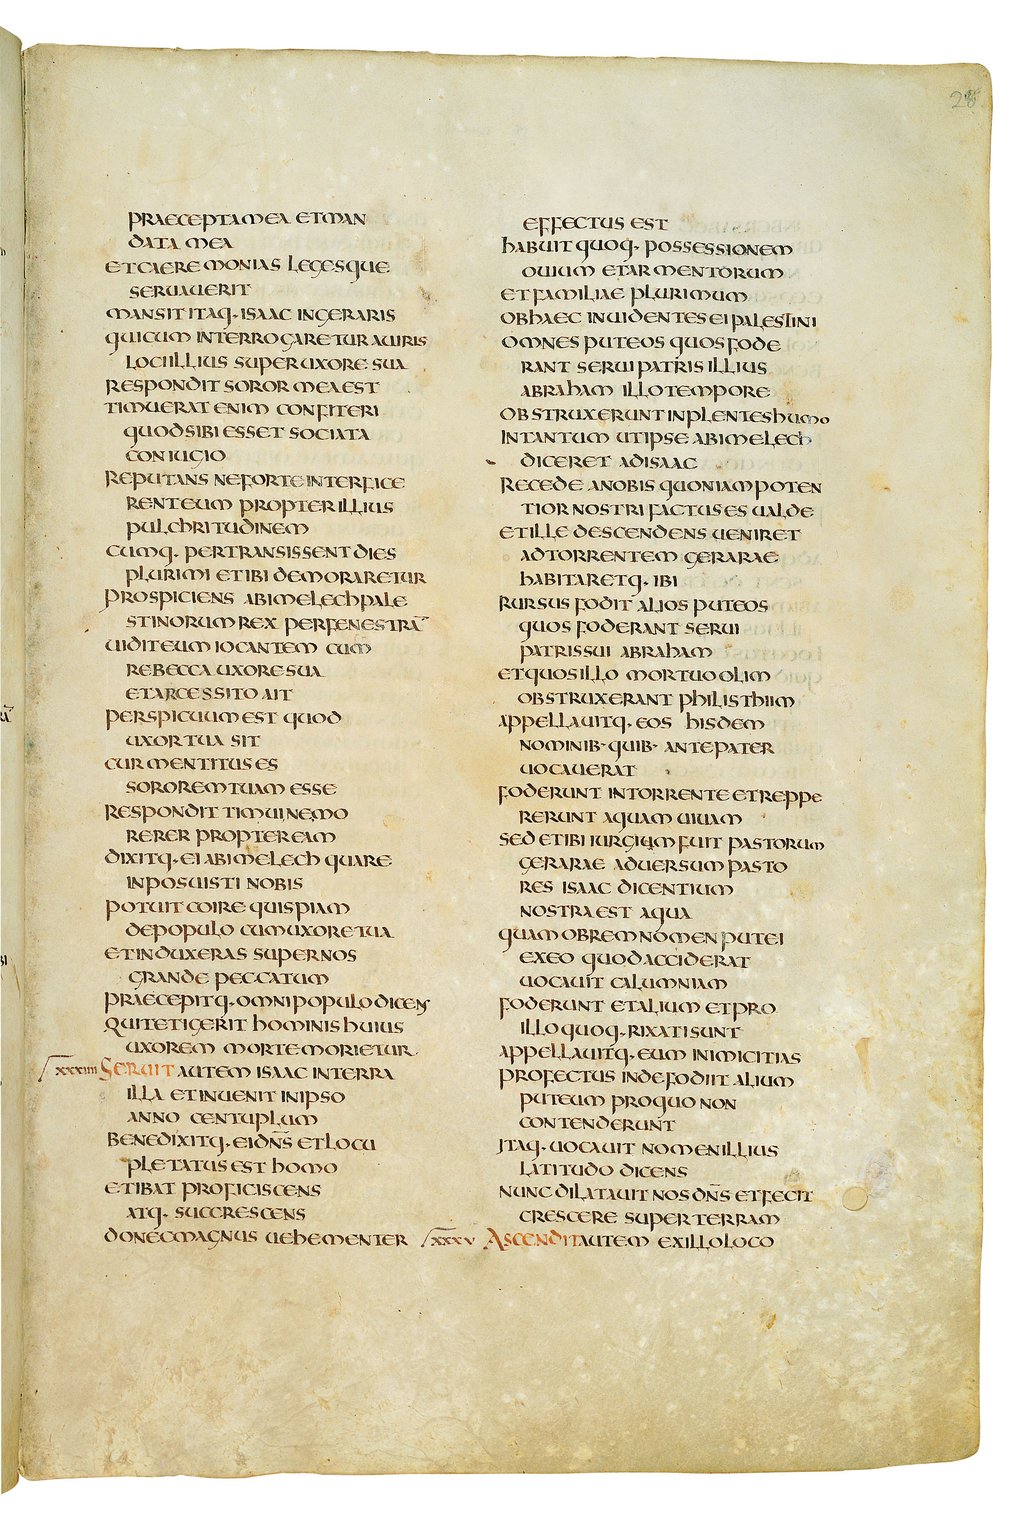 28
PRAECEPTA MEA ET MAN
DATA MEA
ET CAEREMONIAS LEGESQUE
SERUAUERIT
MANSIT ITAQ· ISAAC INGERARIS
QUI CUM INTERROGARETUR A UIRIS
LOCI ILLIUS SUPER UXORE SUA
RESPONDIT SOROR MEA EST
TIMUERAT ENIM CONFITERI
QUOD SIBI ESSET SOCIATA
CONIUGIO
REPUTANS NE FORTE INTERFICE
RENT EUM PROPTER ILLIUS
PULCHRITUDINEM
CUMQ· PERTRANSISSENT DIES
PLURIMI ET IBI DEMORARETUR
PROSPICIENS ABIMELECH PALE
STINORUM REX PER FENESTRA̅
UIDIT EUM IOCANTEM CUM
REBECCA UXORE SUA
ET ARCESSITO AIT
PERSPICUUM EST QUOD
UXOR TUA SIT
CUR MENTITUS ES
SOROREM TUAM ESSE
RESPONDIT TIMUI NE MO
RERER PROPTER EAM
DIXITQ· EI ABIMELECH QUARE
INPOSUISTI NOBIS
POTUIT COIRE QUISPIAM
DE POPULO CUM UXORE TUA
ET INDUXERAS SUPER NOS
GRANDE PECCATUM
PRAECEPITQ· OMNI POPULO DICENS
QUI TETIGERIT HOMINIS HUIUS
UXOREM MORTE MORIETUR
XXXIIII SERUIT AUTEM ISAAC IN TERRA
ILLA ET INUENIT IN IPSO
ANNO CENTUPLUM
BENEDIXITQ· EI DN̅S ET LOCU
PLETATUS EST HOMO
ET IBAT PROFICISCENS
ATQ· SUCCRESCENS
DONEC MAGNUS UEHEMENTER
EFFECTUS EST
HABUIT QUOQ· POSSESSIONEM
OUIUM ET ARMENTORUM
ET FAMILIAE PLURIMUM
OB HAEC INUIDENTES EI PALESTINI
OMNES PUTEOS QUOS FODE
RANT SERUI PATRIS ILLIUS
ABRAHAM ILLO TEMPORE
OBSTRUXERUNT INPLENTES HUMO
IN TANTUM UT IPSE ABIMELECH
DICERET AD ISAAC
RECEDE A NOBIS QUONIAM POTEN
TIOR NOSTRI FACTUS ES UALDE
ET ILLE DESCENDENS UENIRET
AD TORRENTEM GERARAE
HABITARETQ· IBI
RURSUS FODIT ALIOS PUTEOS
QUOS FODERANT SERUI
PATRIS SUI ABRAHAM
ET QUOS ILLO MORTUO OLIM
OBSTRUXERANT PHILISTHIIM
APPELLAUITQ· EOS HISDEM
NOMINIB· QUIB· ANTE PATER
UOCAUERAT
FODERUNT IN TORRENTE ET REPPE
RERUNT AQUAM UIUAM
SED ET IBI IURGIUM FUIT PASTORUM
GERARAE ADUERSUM PASTO
RES ISAAC DICENTIUM
NOSTRA EST AQUA
QUAM OBREM NOMEN PUTEI
EX EO QUOD ACCIDERAT
UOCAUIT CALUMNIAM
FODERUNT ET ALIUM ET PRO
ILLO QUOQ· RIXATI SUNT
APPELLAUITQ· EUM INIMICITIAS
PROFECTUS INDE FODIIT ALIUM
PUTEUM PRO QUO NON
CONTENDERUNT
ITAQ· UOCAUIT NOMEN ILLIUS
LATITUDO DICENS
NUNC DILATAUIT NOS DN̅S ET FECIT
CRESCERE SUPER TERRAM
XXXV ASCENDIT AUTEM EX ILLO LOCO